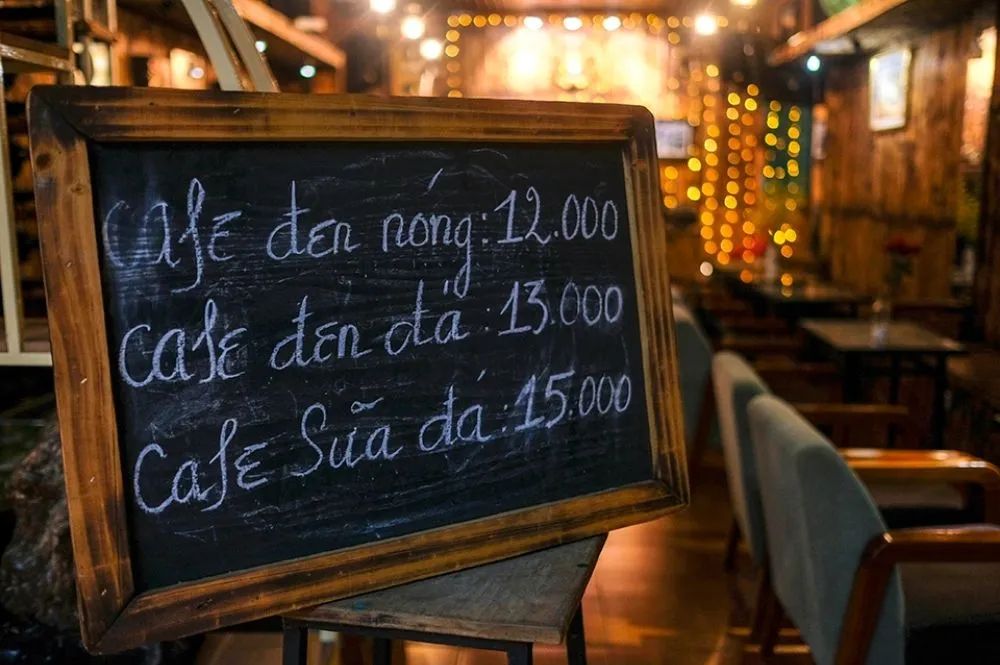 Cafe đen nóng: 12.000
Cafe đen đá: 13.000
Cafe Sữa đá: 15.000